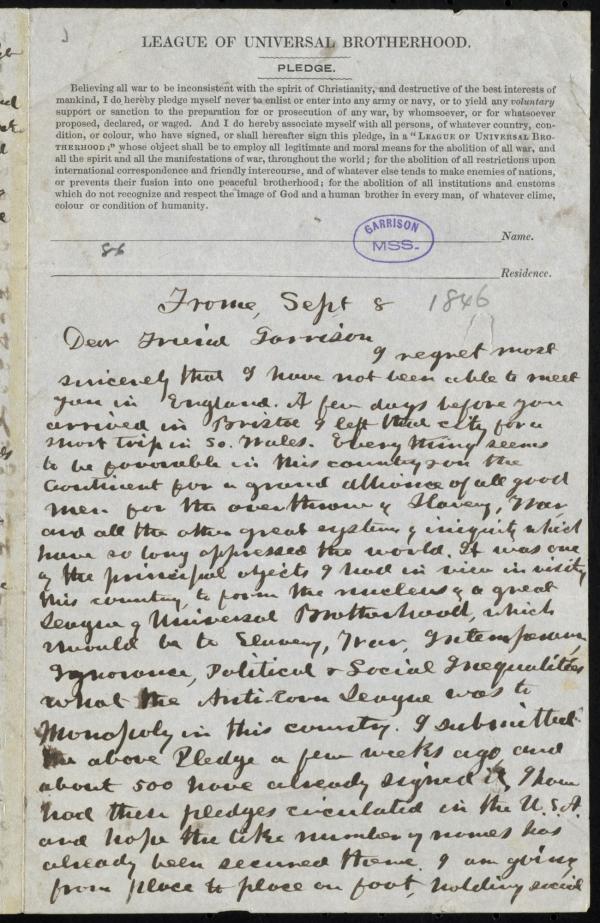 LEAGUE OF UNIVERSAL BROTHERHOOD.
PLEDGE.
Believing all war to be inconsistent with the spirit of Christianity, and destructive of the best interests of
mankind, I do hereby pledge myself never to enlist or enter into any army or navy, or to yield any voluntary
support or sanction to the preparation for or prosecution of any war, by whomsoever, or for whatsoever
proposed, declared, or waged. And I do hereby associate myself with all persons, of whatever country, con-
dition, or colour, who have signed, or shall hereafter sign this pledge, in a "LEAGUE OF UNIVERSAL BRO-
THERHOOD;" whose object shall be to employ all legitimate and moral means for the abolition of all war, and
all the spirit and all the manifestations of war, throughout the world; for the abolition of all restrictions upon
international correspondence and friendly intercourse, and of whatever else tends to make enemies of nations,
or prevents their fusion into one peaceful brotherhood; for the abolition of all institutions and customs
which do not recognize and respect the image of God and a human brother in every man, of whatever clime,
colour or condition of humanity.
GARRISON
MSS.
Name.
86
Residence.
Frome, Sept 8 1846
Dear Friend Garrison
I regret most
sincerely that I have not been able to meet
you in England. A few days before you
arrived in Bristol I left that city for a
short trip in So. Wales. Every thing seems
to be favorable in this country & on the
Continent for a grand alliance of all good
men for the overthrow of Slavery, War,
and all the other great systems of iniquity which
have so long oppressed the world. It was one
of the principal objects I had in view in visiting
this country, to form the nucleus of a great
League of Universal Brotherhood, which
should be to Slavery, War, Intemperance,
Ignorance, Political & Social Inequalities
what the Anti-Corn League was to
Monopoly in this country. I submitted
the above Pledge a few weeks ago and
about 500 have already signed it. I have
had these pledges circulated in the U.S.A.
and hope the like number of names has
already been secured there. I am going
from place to place on foot, holding social